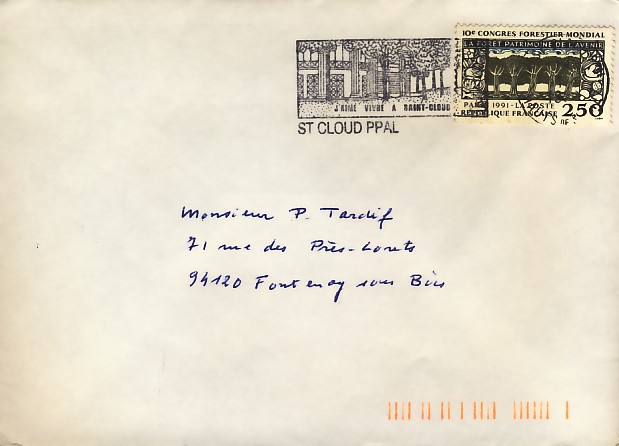 10e CONGRES FORESTIER MONDIAL
LA FORET PATRIMOINE DE L'AVENIR
PARIS 1991-LA POSTE
REPUBLIQUE FRANCAISE 2,50
J'AIME VIVRE A SAINT-CLOUD
ST CLOUD PPAL
Monsieur P. Tardif
71 rue des Près-Lorets
94120 Fontenay sous Bois